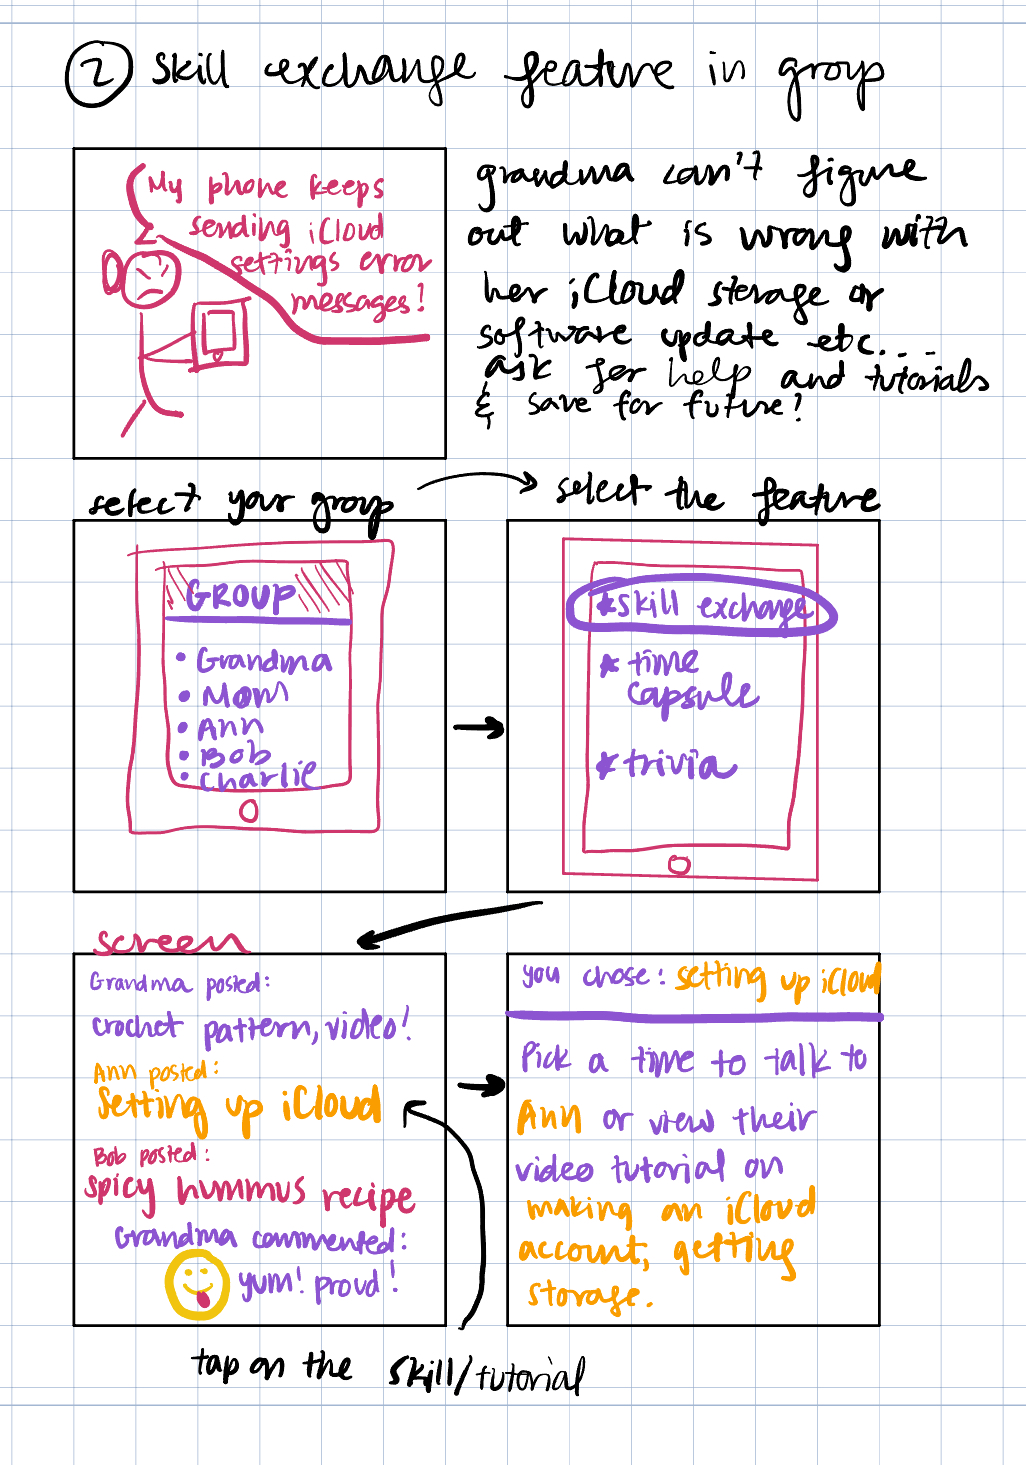 2 skill exchange feature in group
My phone keeps
sending iCloud
settings error
messages!
grandma can't figure
out what is wrong with
her iCloud storage or
software update etc....
ask for help and tutorials
& save for future!
select your group
select the feature
GROUP
• Grandma
• Mom
• Ann
• Bob
• Charlie
* skill exchange
* time
capsule
* trivia
screen
Grandma posted:
crochet pattern, video!
Ann posted:
Setting up iCloud
Bob posted:
spicy hummus recipe
Grandma commented:
yum! proud!
you chose: setting up iCloud
Pick a time to talk to
Ann or view their
video tutorial on
making an iCloud
account, getting
storage.
tap on the skill/tutorial